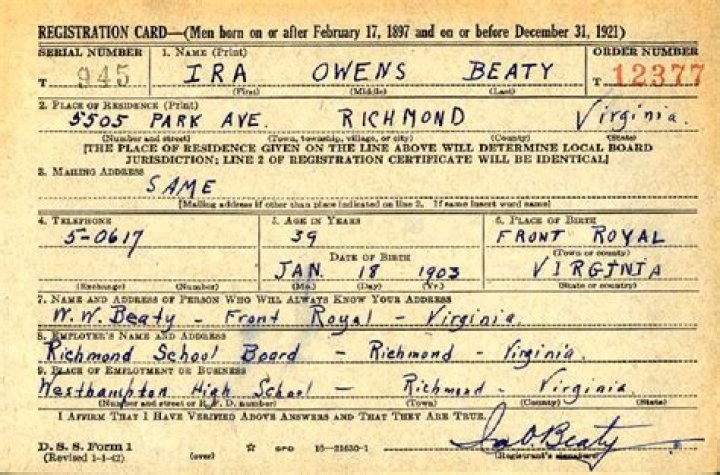 REGISTRATION CARD—(Men born on or after February 17, 1897 and on or before December 31, 1921)
SERIAL NUMBER 1. NAME (Print) ORDER NUMBER
T 945 IRA OWENS BEATY T 12377
(First) (Middle) (Last)
2. PLACE OF RESIDENCE (Print)
5505 PARK AVE. RICHMOND Virginia.
(Number and street) (Town, township, village, or city) (County) (State)
[THE PLACE OF RESIDENCE GIVEN ON THE LINE ABOVE WILL DETERMINE LOCAL BOARD
JURISDICTION; LINE 2 OF REGISTRATION CERTIFICATE WILL BE IDENTICAL]
3. MAILING ADDRESS
SAME
[Mailing address if other than place indicated on line 2. If same insert word same]
4. TELEPHONE 5. AGE IN YEARS 6. PLACE OF BIRTH
5-0617 39 FRONT ROYAL
(Town or county)
DATE OF BIRTH
JAN. 18 1903 VIRGINIA
(Exchange) (Number) (Mo.) (Day) (Yr.) (State or country)
7. NAME AND ADDRESS OF PERSON WHO WILL ALWAYS KNOW YOUR ADDRESS
W. W. Beaty - Front Royal - Virginia.
8. EMPLOYER'S NAME AND ADDRESS
Richmond School Board - Richmond - Virginia.
9. PLACE OF EMPLOYMENT OR BUSINESS
Westhampton High School - Richmond - Virginia.
(Number and street or R. F. D. number) (Town) (County) (State)
I AFFIRM THAT I HAVE VERIFIED ABOVE ANSWERS AND THAT THEY ARE TRUE.
D. S. S. Form 1 GPO 16-21630-1 Ira O. Beaty
(Revised 1-1-42) (over) (Registrant's signature)